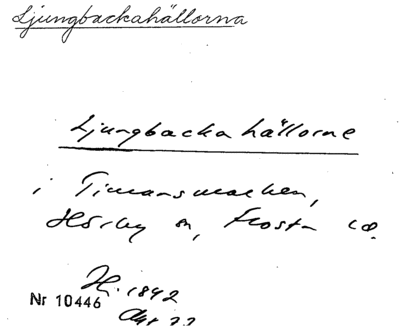 Ljungbackahällorna
Ljungbacka hällorne
i Timansmarken,
Hörby sn, Frosta
H. 1842
Nr 10446